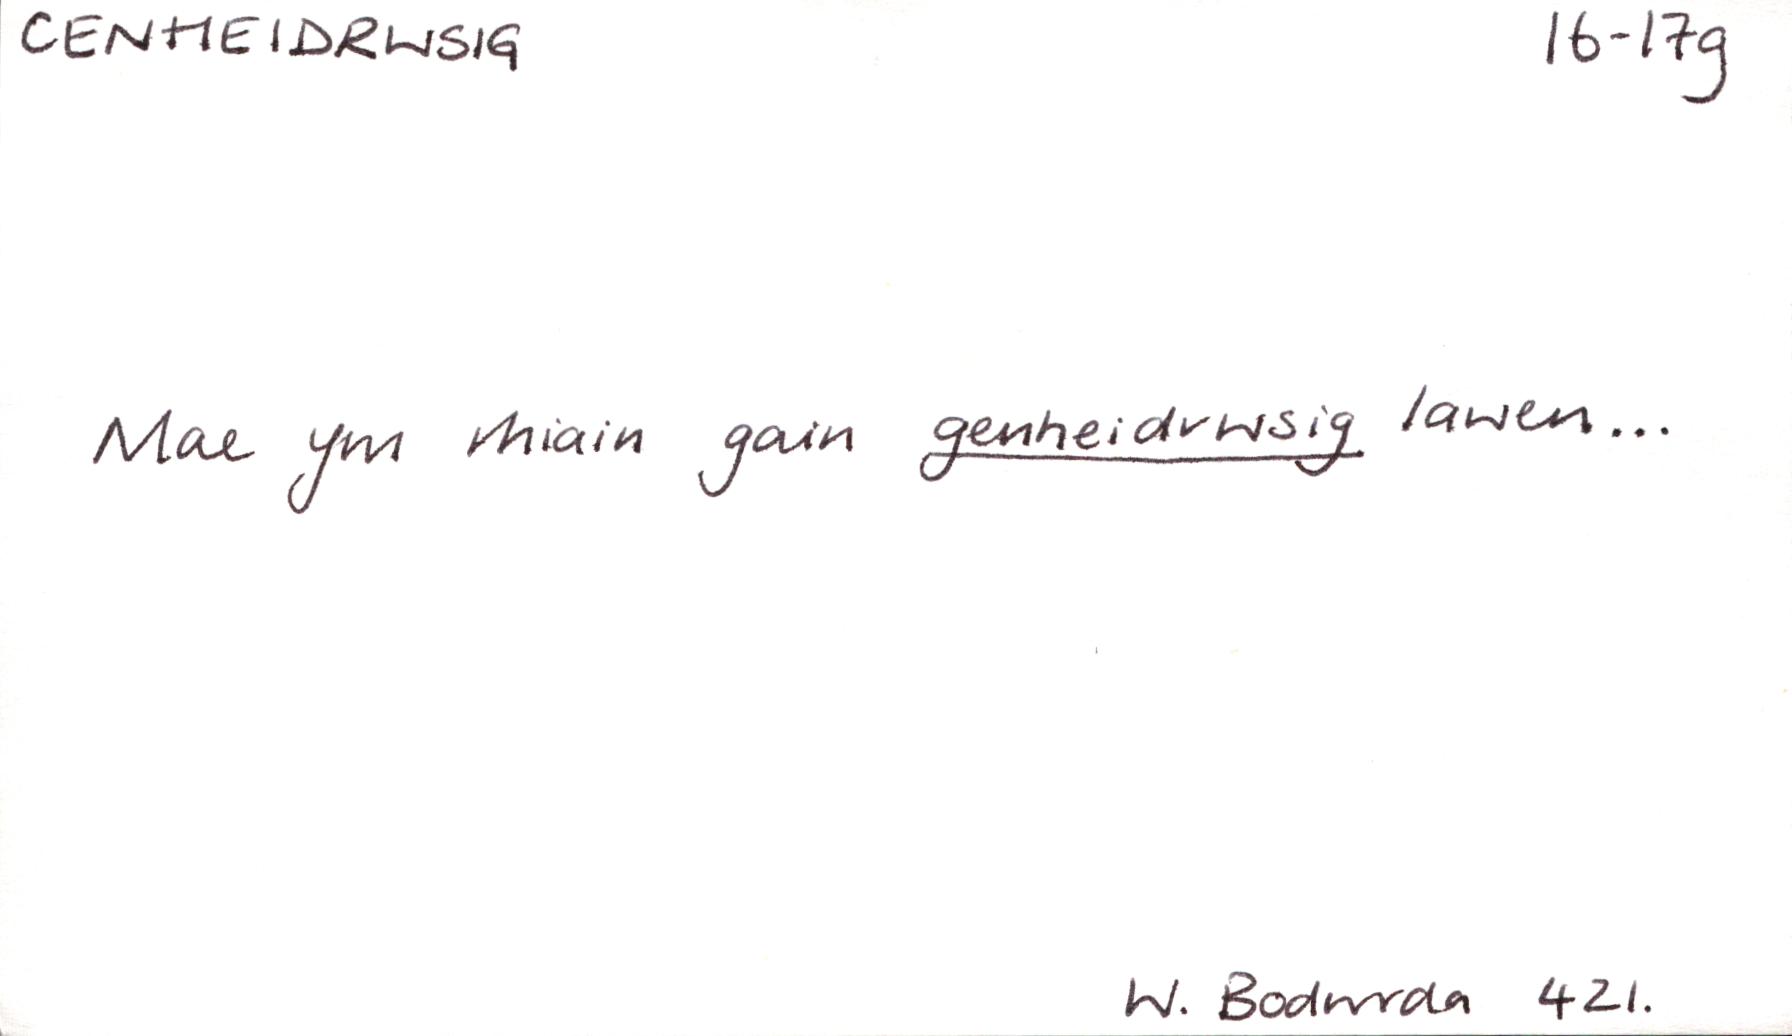 CENHEIDRWSIG 16-17g
Mae ym rhiain gain genheidrwsig lawen...
W. Bodwrda 421.